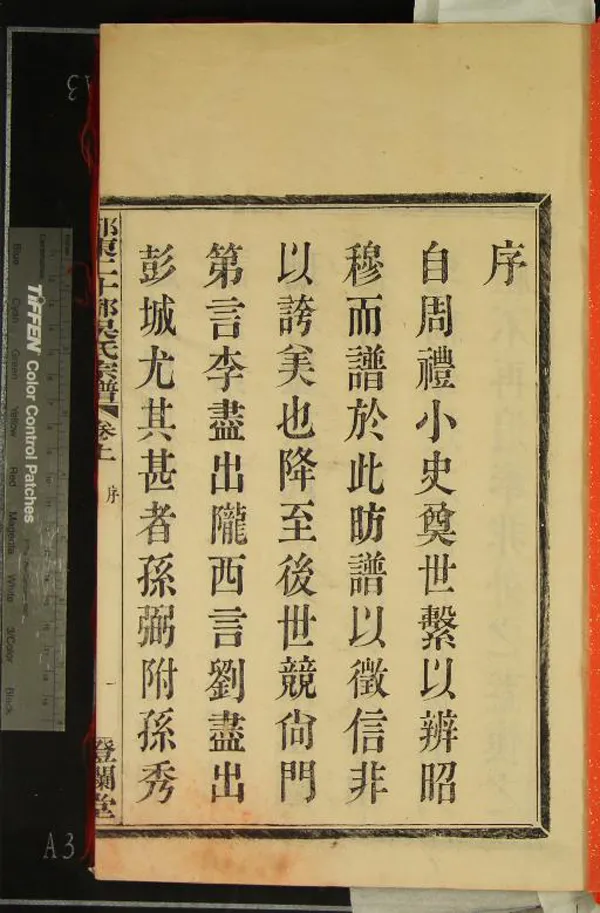 序
自周禮小史奠世繫以辨昭
穆而譜於此昉譜以徵信非
以誇美也降至後世競尙門
第言李盡出隴西言劉盡出
彭城尤其甚者孫弼附孫秀
吳氏宗譜
卷上
序
一
登瀾堂
TIFFEN Color Control Patches
Blue
Cyan
Green
Yellow
Red
Magenta
White
3/Color
Black
A3